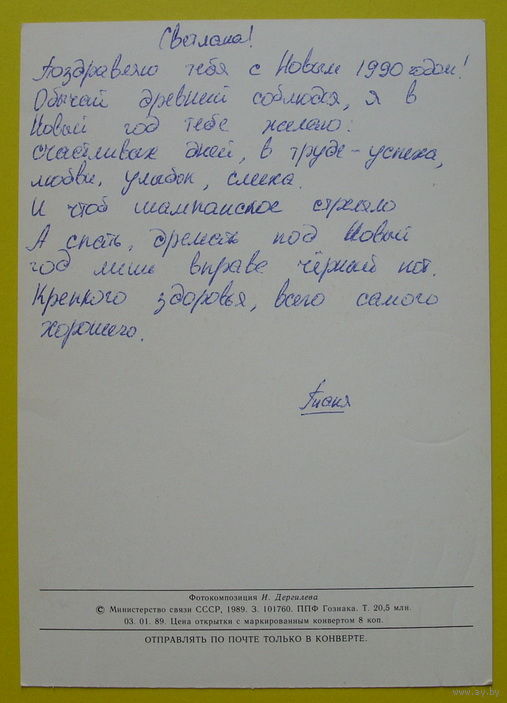 Светлана!
Поздравляю тебя с Новым 1990 годом!
Обычай древний соблюдая, я в
Новый год тебе желаю:
счастливых дней, в труде - успеха,
любви, улыбок, смеха.
И чтоб шампанское стреляло
А спать, дремать под Новый
год лишь вправе чёрный кот.
Крепкого здоровья, всего самого
хорошего.
Таня
Фотокомпозиция И. Дергилева
© Министерство связи СССР, 1989. З. 101760. ППФ Гознака. Т. 20,5 млн.
03. 01. 89. Цена открытки с маркированным конвертом 8 коп.
ОТПРАВЛЯТЬ ПО ПОЧТЕ ТОЛЬКО В КОНВЕРТЕ.
www.ay.by